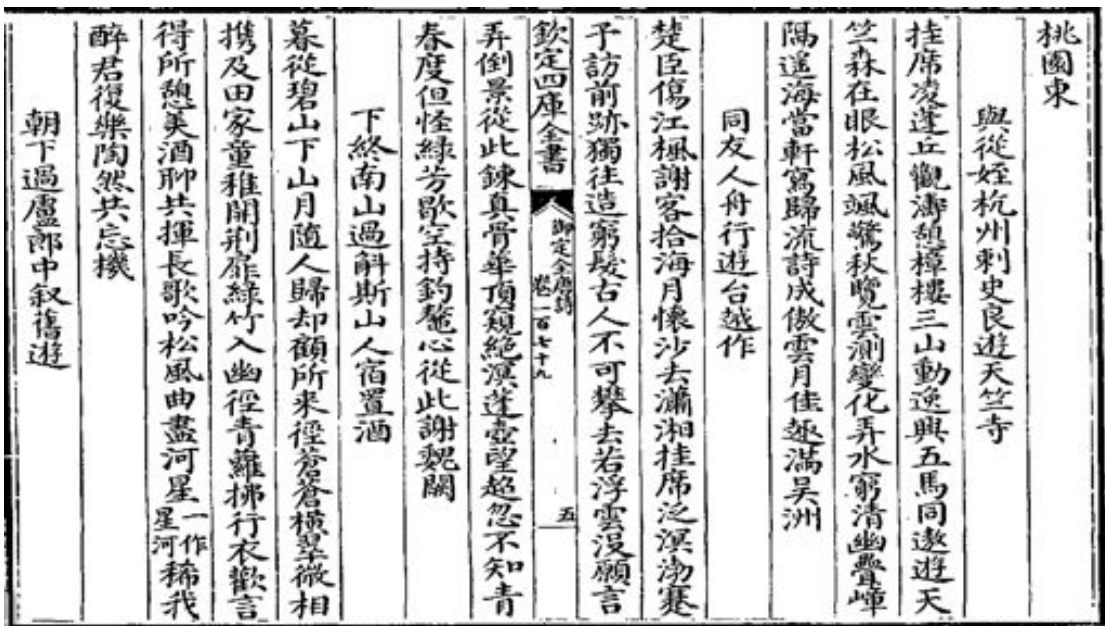 桃園東
與從姪杭州刺史良遊天竺寺
挂席凌蓬丘觀濤憩樟樓三山動逸興五馬同遨遊天
竺森在眼松風颯驚秋覽雲測變化弄水窮清幽疊嶂
隔遥海當軒寫歸流詩成傲雲月佳趣滿吳洲
同友人舟行遊台越作
楚臣傷江楓謝客拾海月懷沙去瀟湘挂席泛溟渤蹇
予訪前跡獨往造窮髮古人不可攀去若浮雲沒願言
欽定四庫全書 御定全唐詩 卷一百七十九 五
弄倒景從此鍊真骨華頂窺絶溟蓬壺望超忽不知青
春度但怪綠芳歇空持釣鼇心從此謝魏闕
下終南山過斛斯山人宿置酒
暮從碧山下山月隨人歸却顧所来徑蒼蒼橫翠微相
携及田家童稚開荆扉綠竹入幽徑青蘿拂行衣歡言
得所憩美酒聊共揮長歌吟松風曲盡河星一作星河稀我
醉君復樂陶然共忘機
朝下過盧郎中叙舊遊